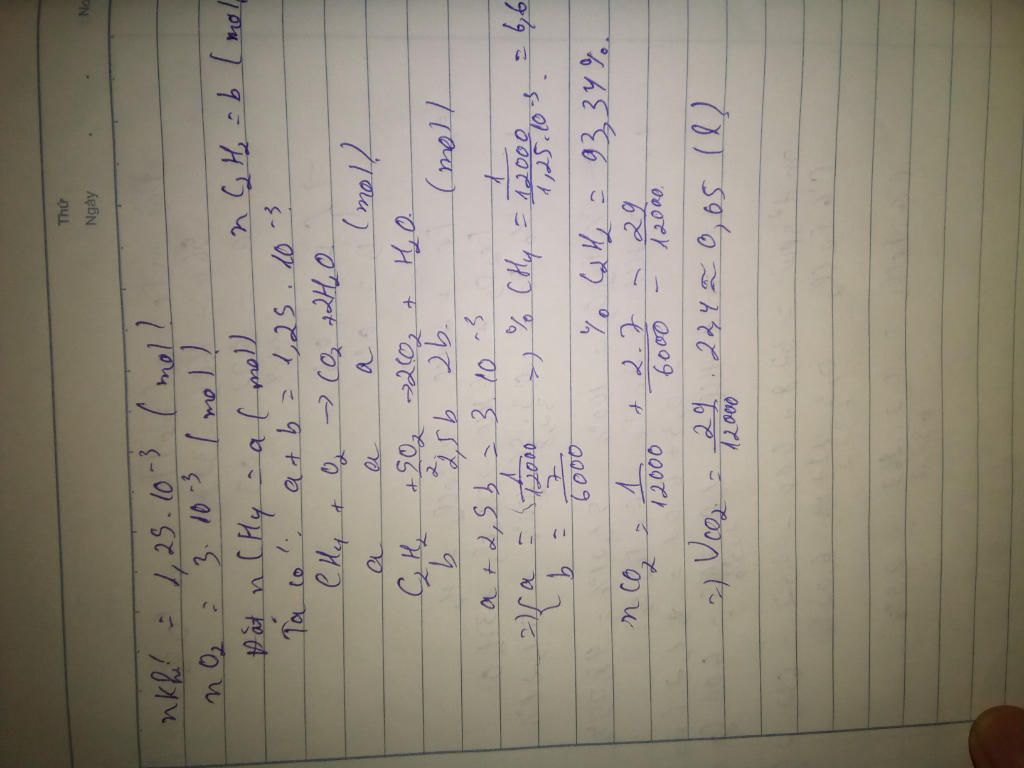 Thứ
Ngày
No
n khí = 1,25.10⁻³ (mol)
nO₂ = 3.10⁻³ (mol)
Đặt nCH₄ = a (mol) nC₂H₂ = b (mol)
Ta có: a + b = 1,25.10⁻³
CH₄ + O₂ → CO₂ + 2H₂O
a a a (mol)
C₂H₂ + 5/2O₂ → 2CO₂ + H₂O
b 2,5b 2b (mol)
a + 2,5b = 3.10⁻³
=> { a = 1/12000 => % CH₄ = 1/12000 / 1,25.10⁻³ = 6,6
b = 7/6000 % C₂H₂ = 93,34%.
nCO₂ = 1/12000 + 2.7/6000 = 29/12000
=> VCO₂ = 29/12000 . 22,4 ≈ 0,65 (l)